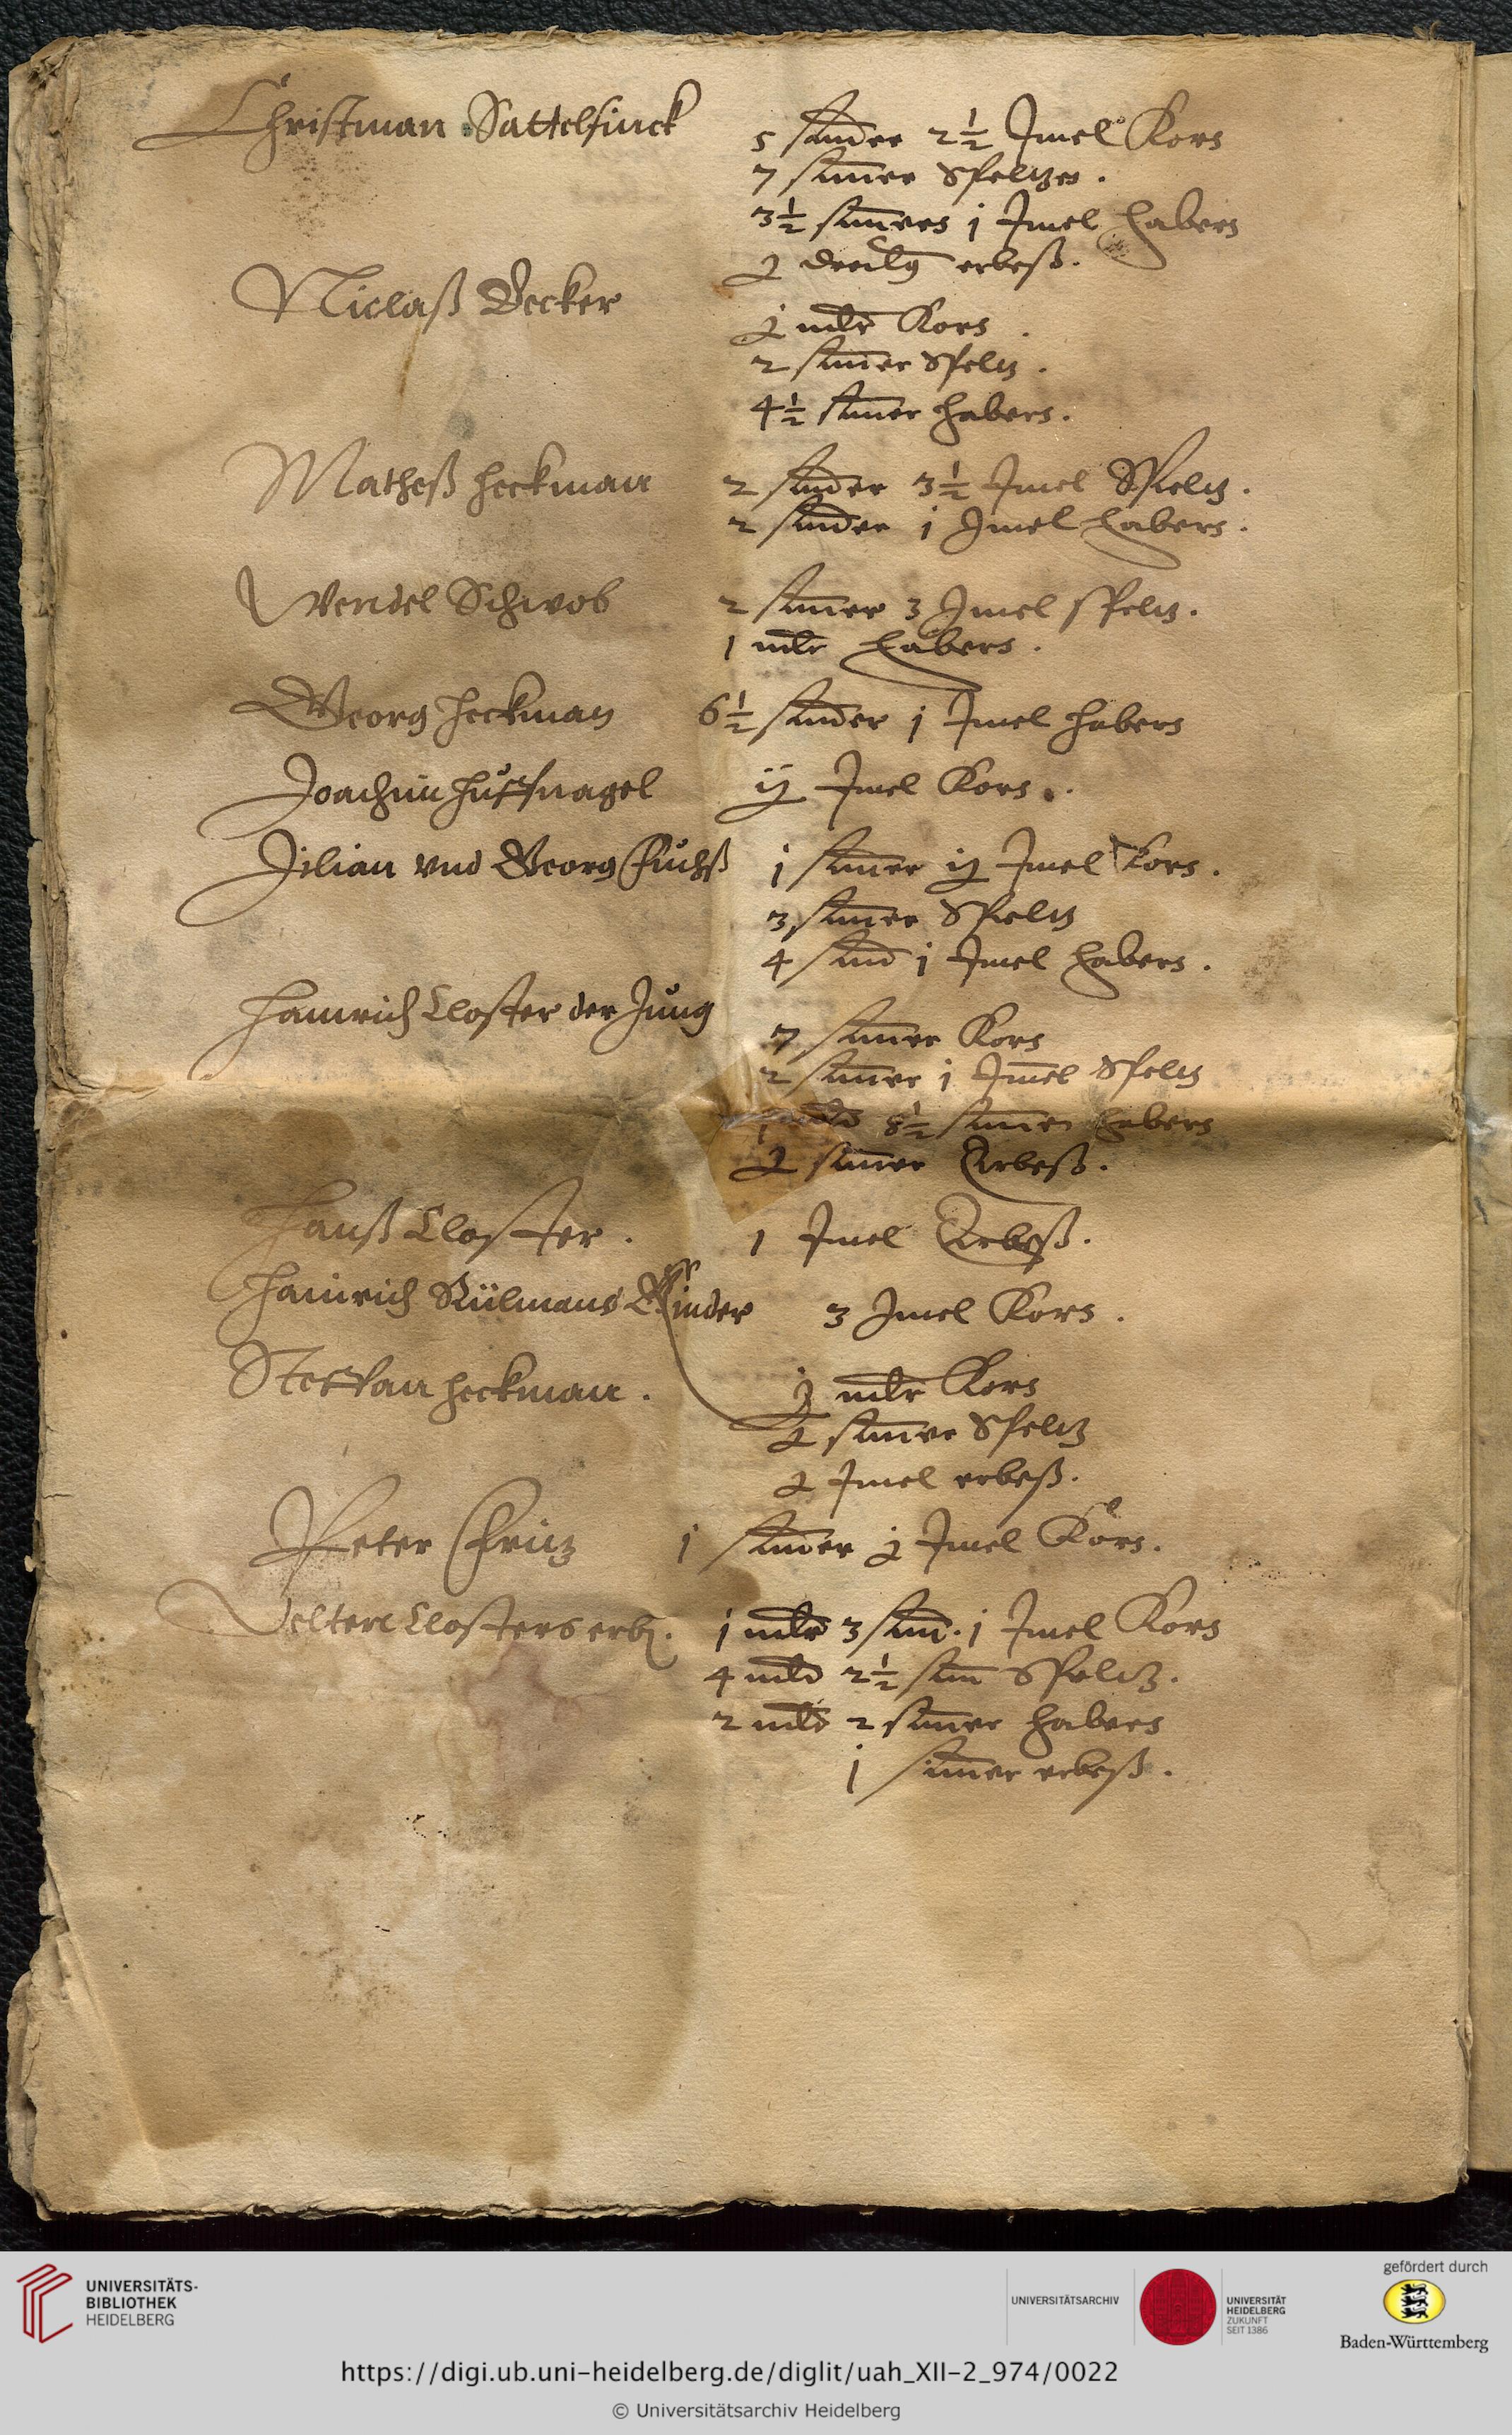 Christman Sattelfinck
5 simer 2½ Imel Korn
7 simer Speltzen.
3½ simern j Imel habern
j dreilg erbeß.
Niclaß Becker
j mlr Korn.
2 simer Speltz.
4½ simer habern.
Matheß Heckman
2 simer 3½ Imel Speltz.
2 simer j Imel habern.
Wendel Schwob
2 simer 3 Imel speltz.
1 mlr habern.
Georg Heckman 6½ simer j Imel habern
Joachim Huffnagel ij Imel Korn.
Jilian vnd Georg Fuchß j simer ij Imel Korn.
3 simer Speltz
4 sim j Imel habern.
Hainrich Closter der Jung
7 simer Korn
2 simer j Imel Speltz
1 mld 8½ simer habern
j simer Erbeß.
Hanß Closter. 1 Imel Erbeß.
Hainrich Külmans Kinder 3 Imel Korn.
Steffan Heckman. j mlr Korn
j simer Speltz
j Imel erbeß.
Peter Fritz j simer j Imel Korn.
Velten Closters erb. j mlr 3 sim. j Imel Korn
4 mld 2½ sim Speltz.
2 mld 2 simer habern
j simer erbeß.
UNIVERSITÄTS-
BIBLIOTHEK
HEIDELBERG
UNIVERSITÄTSARCHIV
UNIVERSITÄT
HEIDELBERG
ZUKUNFT
SEIT 1386
gefördert durch
Baden-Württemberg
https://digi.ub.uni-heidelberg.de/diglit/uah_XII-2_974/0022
© Universitätsarchiv Heidelberg